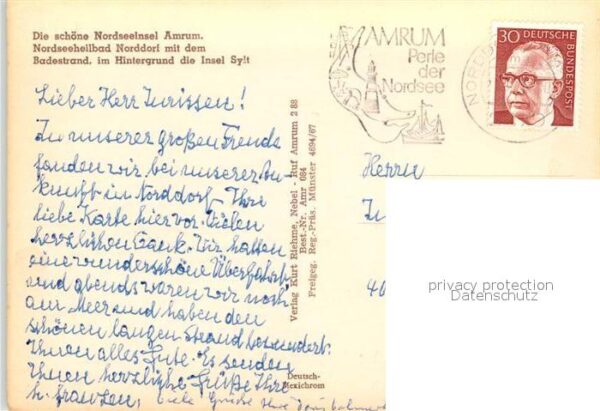 Die schöne Nordseeinsel Amrum.
Nordseeheilbad Norddorf mit dem
Badestrand, im Hintergrund die Insel Sylt
AMRUM
Perle
der
Nordsee
NORDD
30 DEUTSCHE
BUNDESPOST
Lieber Herr Jurissen!
Zu unserer großen Freude
fanden wir bei unserer An
kunft in Norddorf Ihre
liebe Karte hier vor. Vielen
herzlichen Dank. Wir hatten
eine wunderschöne Überfahrt
und abends waren wir noch
am Meer und haben den
schönen langen Strand bewundert.
Ihnen alles Gute. Es senden
Ihnen herzliche Grüße Ihre
h. Frantzen, viele Grüße Ihre
Verlag Kurt Riehme, Nebel - Ruf Amrum 2 88
Best.-Nr. Amr 084
Freigeg. Reg.-Präs. Münster 4694/67
Deutsch-
Mexichrom
Herrn
Ju
40
privacy protection
Datenschutz